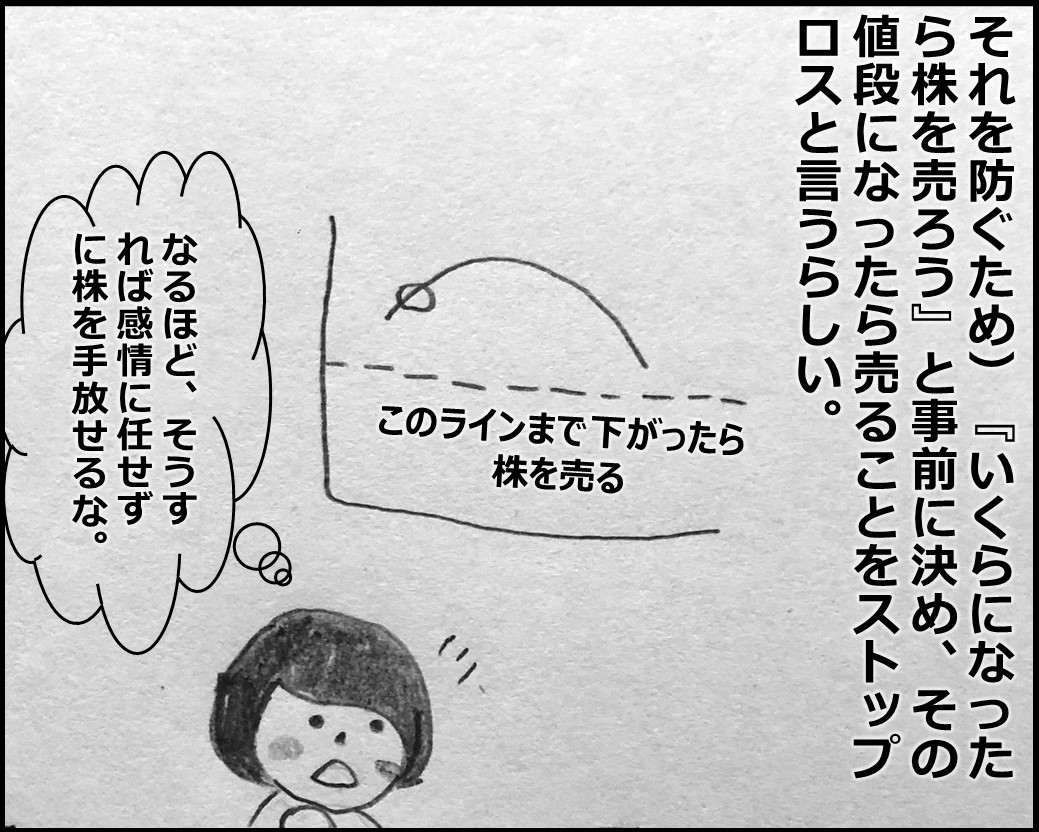 それを防ぐため）『いくらになった
ら株を売ろう』と事前に決め、その
値段になったら売ることをストップ
ロスと言うらしい。
このラインまで下がったら
株を売る
なるほど、そうす
れば感情に任せず
に株を手放せるな。